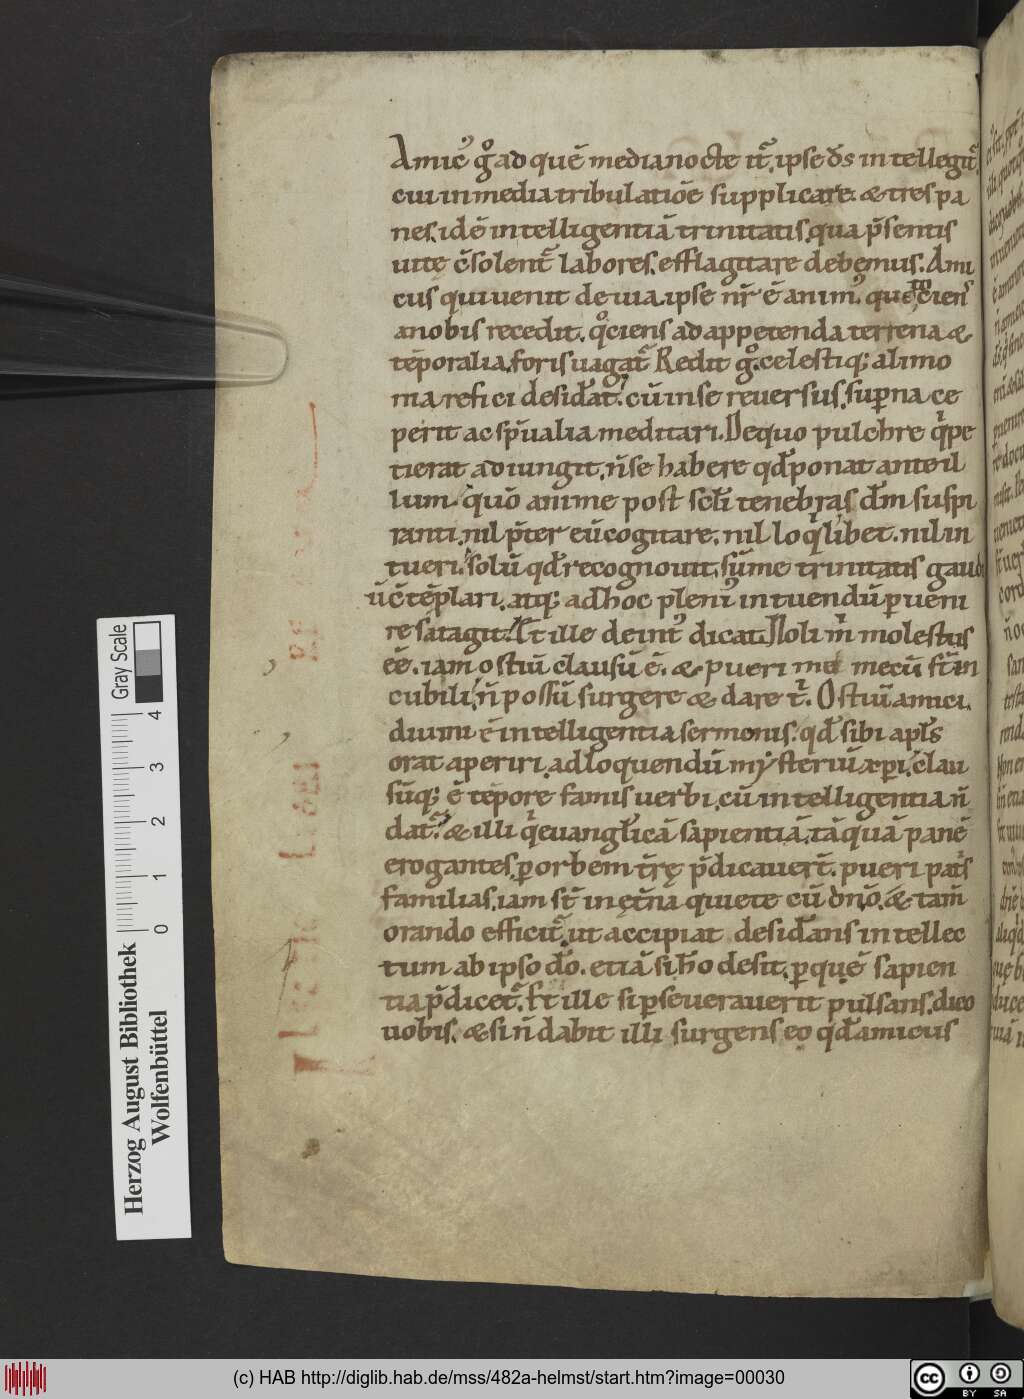 Amic᷒ gͦ ad quē media nocte it᷑. ipse d̄s intellegit᷑.
cui in media tribulatiōe supplicare. & tres pa
nes. idē intelligentiā trinitatis. qua p̄sentis
uitę c̄solent᷑ labores. efflagitare debemus. Ami
cus qui uenit de uia. ipse nr̄ ē anim᷒. que tociens
a nobis recedit. qͦciens ad appetenda terrena &
tēporalia. foris uagat᷑. Redit gͦ. celestiq; alimo
nia refici desid̄at. cū in se reuersus. sup̱na ce
perit ac sp̄ualia meditari. De quo pulchre qͥ pe
tierat adiungit. n̄ se habere qd̄ ponat ante il
lum. quō anime post sc̄li tenebras d̄m suspi
ranti. nil p̄ter eū cogitare. nil loqͥ libet. nil in
tueri. solū qd̄ recognouit. sūme trinitatis gaudi
ū c̄tēplari. atq; ad hoc pleni᷒ intuendū p̱ueni
re satagit. Et ille deint᷒ dicat. Noli mͥ molestus
eē. iam ostiū clausū ē. & pueri mei mecū st̄ in
cubili. n̄ possū surgere & dare tͥ. Ostiū amici.
diuini ē intelligentia sermonis. qd̄ sibi apl̄s
orat aperiri. ad loquendū mysteriū xp̄i. clau
sūq; ē tēpore famis uerbi. cū intelligentia n̄
dat᷑. & illi qͥ euangl̄icā sapientiā. tāquā panē
erogantes. p̱ orbem t̄rę p̄dicauer̄t. pueri pat̄s
familias. iam st̄ in ęt̄na quiete cū dn̄o. & tam̄
orando efficit᷑. ut accipiat desid̄ans intellec
tum ab ipso d̄o. etiā si hō desit. p̱ quē sapien
tia p̄dicet᷑. Et ille si p̱seuerauerit pulsans. dico
uobis. & si n̄ dabit illi surgens eo qd̄ amicus
Gray Scale
0 1 2 3 4
Herzog August Bibliothek
Wolfenbüttel
(c) HAB http://diglib.hab.de/mss/482a-helmst/start.htm?image=00030
cc BY SA